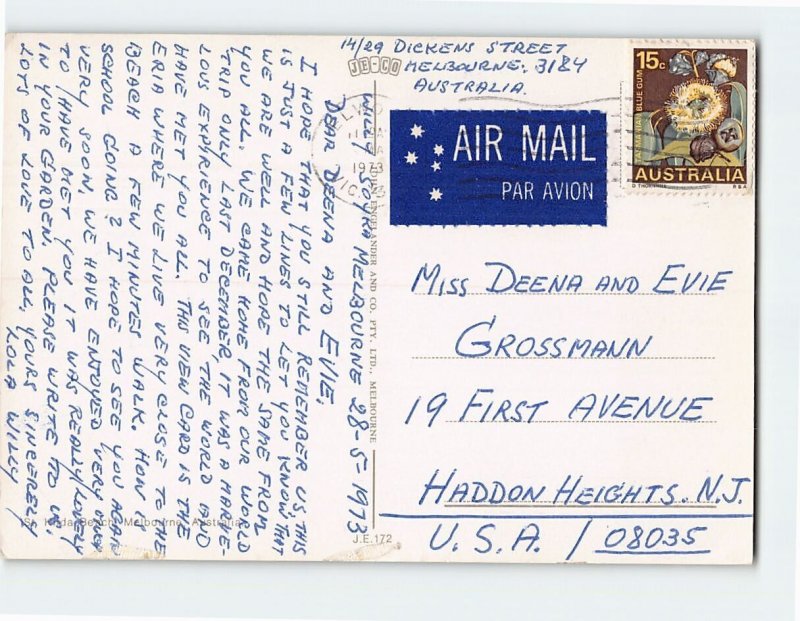 14/29 DICKENS STREET
MELBOURNE. 3184
AUSTRALIA.
JE-CO
15c
TASMANIAN BLUE GUM
AUSTRALIA
D THORNHILL R B A
1973
VIC-3
AIR MAIL
PAR AVION
MISS DEENA AND EVIE
GROSSMANN
19 FIRST AVENUE
HADDON HEIGHTS. N.J.
U.S.A. / 08035
WILLY MELBOURNE 28-5-1973
DEAR DEENA AND EVIE,
I HOPE THAT YOU STILL REMEMBER US. THIS
IS JUST A FEW LINES TO LET YOU KNOW, THAT
WE ARE WELL AND HOPE THE SAME FROM
YOU ALL. WE CAME HOME FROM OUR WORLD
TRIP ONLY LAST DECEMBER, IT WAS A MARVE-
LOUS EXPERIENCE TO SEE THE WORLD AND
HAVE MET YOU ALL. THIS VIEW CARD IS THE
ERIA WHERE WE LIVE VERY CLOSE TO THE
BEACH A FEW MINUTES WALK. HOW IS
SCHOOL GOING? I HOPE TO SEE YOU AGAIN
VERY SOON, WE HAVE ENJOYED VERY MUCH
TO HAVE MET YOU IT WAS REALLY LOVELY
IN YOUR GARDEN. PLEASE WRITE TO US.
LOTS OF LOVE TO ALL, YOURS SINCERELY
LOLA WILLY
JOHN ENGLANDER AND CO. PTY. LTD., MELBOURNE
St. Kilda Beach, Melbourne, Australia
J.E.172